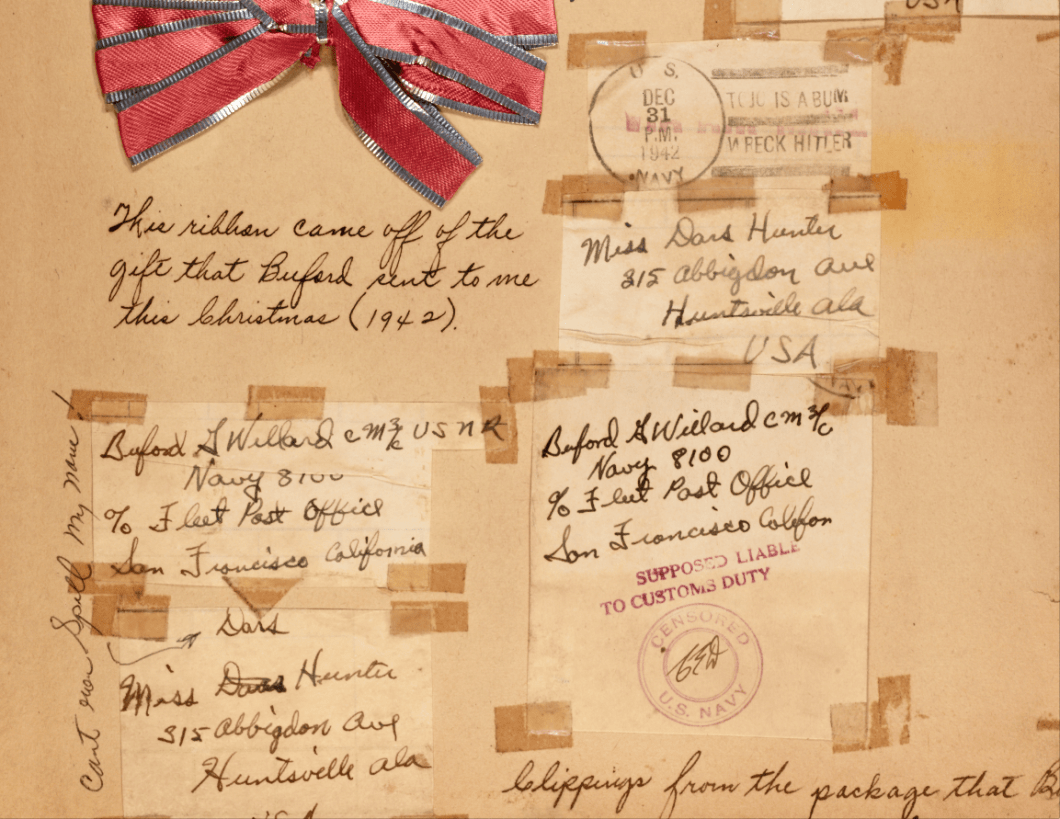 USA
U. S.
DEC
31
P.M.
1942
NAVY
TOJO IS A BUM
WRECK HITLER
This ribbon came off of the
gift that Buford sent to me
this Christmas (1942).
Miss Dars Hunter
315 Abbigdon Ave
Huntsville Ala
USA
Buford G Willard CM 3/c USNR
Navy 8100
% Fleet Post Office
San Francisco California
Cant even Spell My name!
Dars
Miss Hunter
315 Abbigdon Ave
Huntsville Ala
USA
Buford G Willard CM 3/c
Navy 8100
% Fleet Post Office
San Francisco Colifon
SUPPOSED LIABLE
TO CUSTOMS DUTY
CENSORED
U.S. NAVY
Clippings from the package that